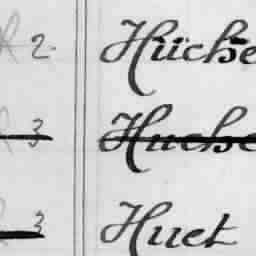 2. Hüche
3 Huche
3 Huet